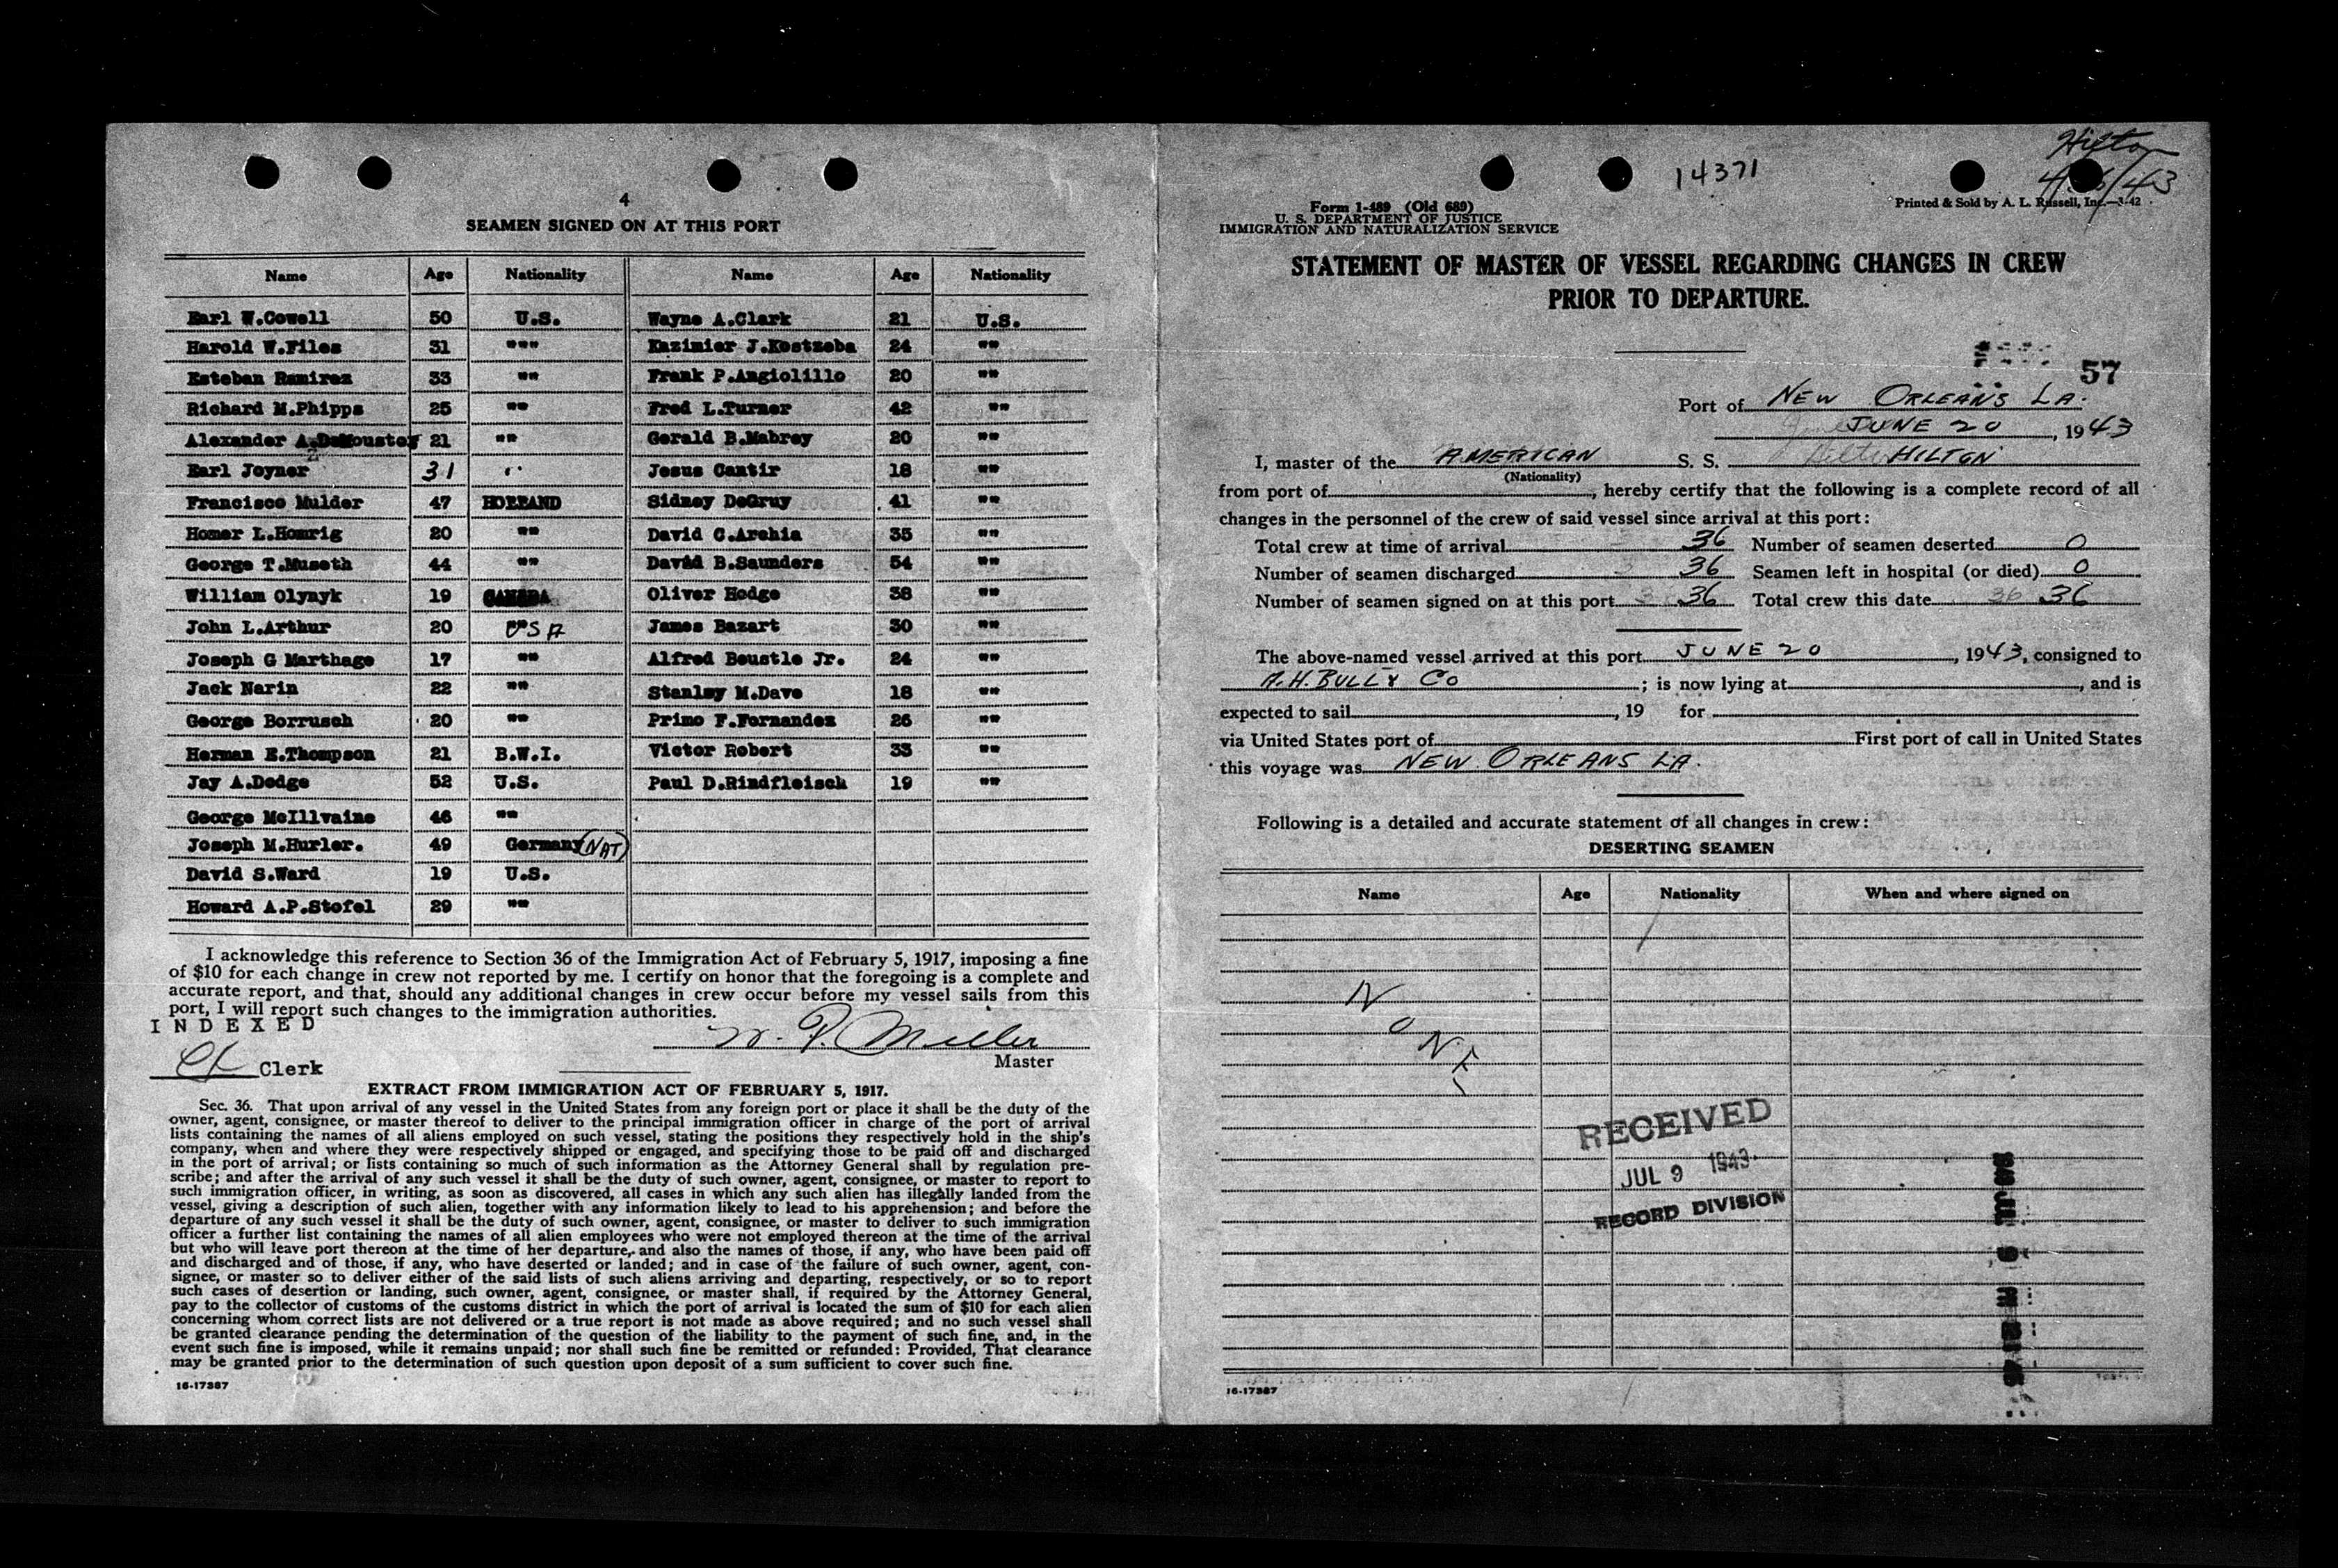 4
SEAMEN SIGNED ON AT THIS PORT
Name Age Nationality Name Age Nationality
Earl W.Cowell 50 U.S. Wayne A.Clark 21 U.S.
Harold W.Files 31 """ Kazimier J.Kostzeba 24 ""
Esteban Ramirez 33 "" Frank P.Angiolillo 20 ""
Richard M.Phipps 25 "" Fred L.Turner 42 ""
Alexander A.DeMoustoy 21 "" Gerald B.Mabrey 20 ""
Earl Joyner 31 " Jesus Cantir 18 ""
Francisco Mulder 47 HOLLAND Sidney DeGruy 41 ""
Homer L.Homrig 20 "" David C.Archia 35 ""
George T.Museth 44 "" David B.Saunders 54 ""
William Olynyk 19 CANADA Oliver Hodge 38 ""
John L.Arthur 20 USA James Bazart 30 ""
Joseph G Marthage 17 "" Alfred Beustle Jr. 24 ""
Jack Narin 22 "" Stanley M.Dave 18 ""
George Borrusch 20 "" Primo F.Fernandez 26 ""
Herman E.Thompson 21 B.W.I. Victor Robert 33 ""
Jay A.Dodge 52 U.S. Paul D.Rindfleisch 19 ""
George McIllvaine 46 ""
Joseph M.Hurler. 49 Germany (NAT)
David S.Ward 19 U.S.
Howard A.P.Stofel 29 ""
I acknowledge this reference to Section 36 of the Immigration Act of February 5, 1917, imposing a fine
of $10 for each change in crew not reported by me. I certify on honor that the foregoing is a complete and
accurate report, and that, should any additional changes in crew occur before my vessel sails from this
port, I will report such changes to the immigration authorities.
INDEXED
W. P. Mueller
Clerk
Master
EXTRACT FROM IMMIGRATION ACT OF FEBRUARY 5, 1917.
Sec. 36. That upon arrival of any vessel in the United States from any foreign port or place it shall be the duty of the
owner, agent, consignee, or master thereof to deliver to the principal immigration officer in charge of the port of arrival
lists containing the names of all aliens employed on such vessel, stating the positions they respectively hold in the ship's
company, when and where they were respectively shipped or engaged, and specifying those to be paid off and discharged
in the port of arrival; or lists containing so much of such information as the Attorney General shall by regulation pre-
scribe; and after the arrival of any such vessel it shall be the duty of such owner, agent, consignee, or master to report to
such immigration officer, in writing, as soon as discovered, all cases in which any such alien has illegally landed from the
vessel, giving a description of such alien, together with any information likely to lead to his apprehension; and before the
departure of any such vessel it shall be the duty of such owner, agent, consignee, or master to deliver to such immigration
officer a further list containing the names of all alien employees who were not employed thereon at the time of the arrival
but who will leave port thereon at the time of her departure, and also the names of those, if any, who have been paid off
and discharged and of those, if any, who have deserted or landed; and in case of the failure of such owner, agent, con-
signee, or master so to deliver either of the said lists of such aliens arriving and departing, respectively, or so to report
such cases of desertion or landing, such owner, agent, consignee, or master shall, if required by the Attorney General,
pay to the collector of customs of the customs district in which the port of arrival is located the sum of $10 for each alien
concerning whom correct lists are not delivered or a true report is not made as above required; and no such vessel shall
be granted clearance pending the determination of the question of the liability to the payment of such fine, and, in the
event such fine is imposed, while it remains unpaid; nor shall such fine be remitted or refunded: Provided, That clearance
may be granted prior to the determination of such question upon deposit of a sum sufficient to cover such fine.
16-17387
14371
Hilton
Form 1-489 (Old 689)
U. S. DEPARTMENT OF JUSTICE
IMMIGRATION AND NATURALIZATION SERVICE
Printed & Sold by A. L. Russell, Inc.—3-42
STATEMENT OF MASTER OF VESSEL REGARDING CHANGES IN CREW
PRIOR TO DEPARTURE.
57
Port of NEW ORLEANS LA.
JUNE 20, 1943
I, master of the AMERICAN S. S. HILTON
(Nationality)
from port of , hereby certify that the following is a complete record of all
changes in the personnel of the crew of said vessel since arrival at this port:
Total crew at time of arrival 36 Number of seamen deserted 0
Number of seamen discharged 36 Seamen left in hospital (or died) 0
Number of seamen signed on at this port 36 Total crew this date 36 36
The above-named vessel arrived at this port JUNE 20, 1943, consigned to
A.H. BULL & CO ; is now lying at , and is
expected to sail , 19 for
via United States port of First port of call in United States
this voyage was NEW ORLEANS LA.
Following is a detailed and accurate statement of all changes in crew:
DESERTING SEAMEN
Name Age Nationality When and where signed on
NONE
RECEIVED
JUL 9 1943
RECORD DIVISION
16-17387